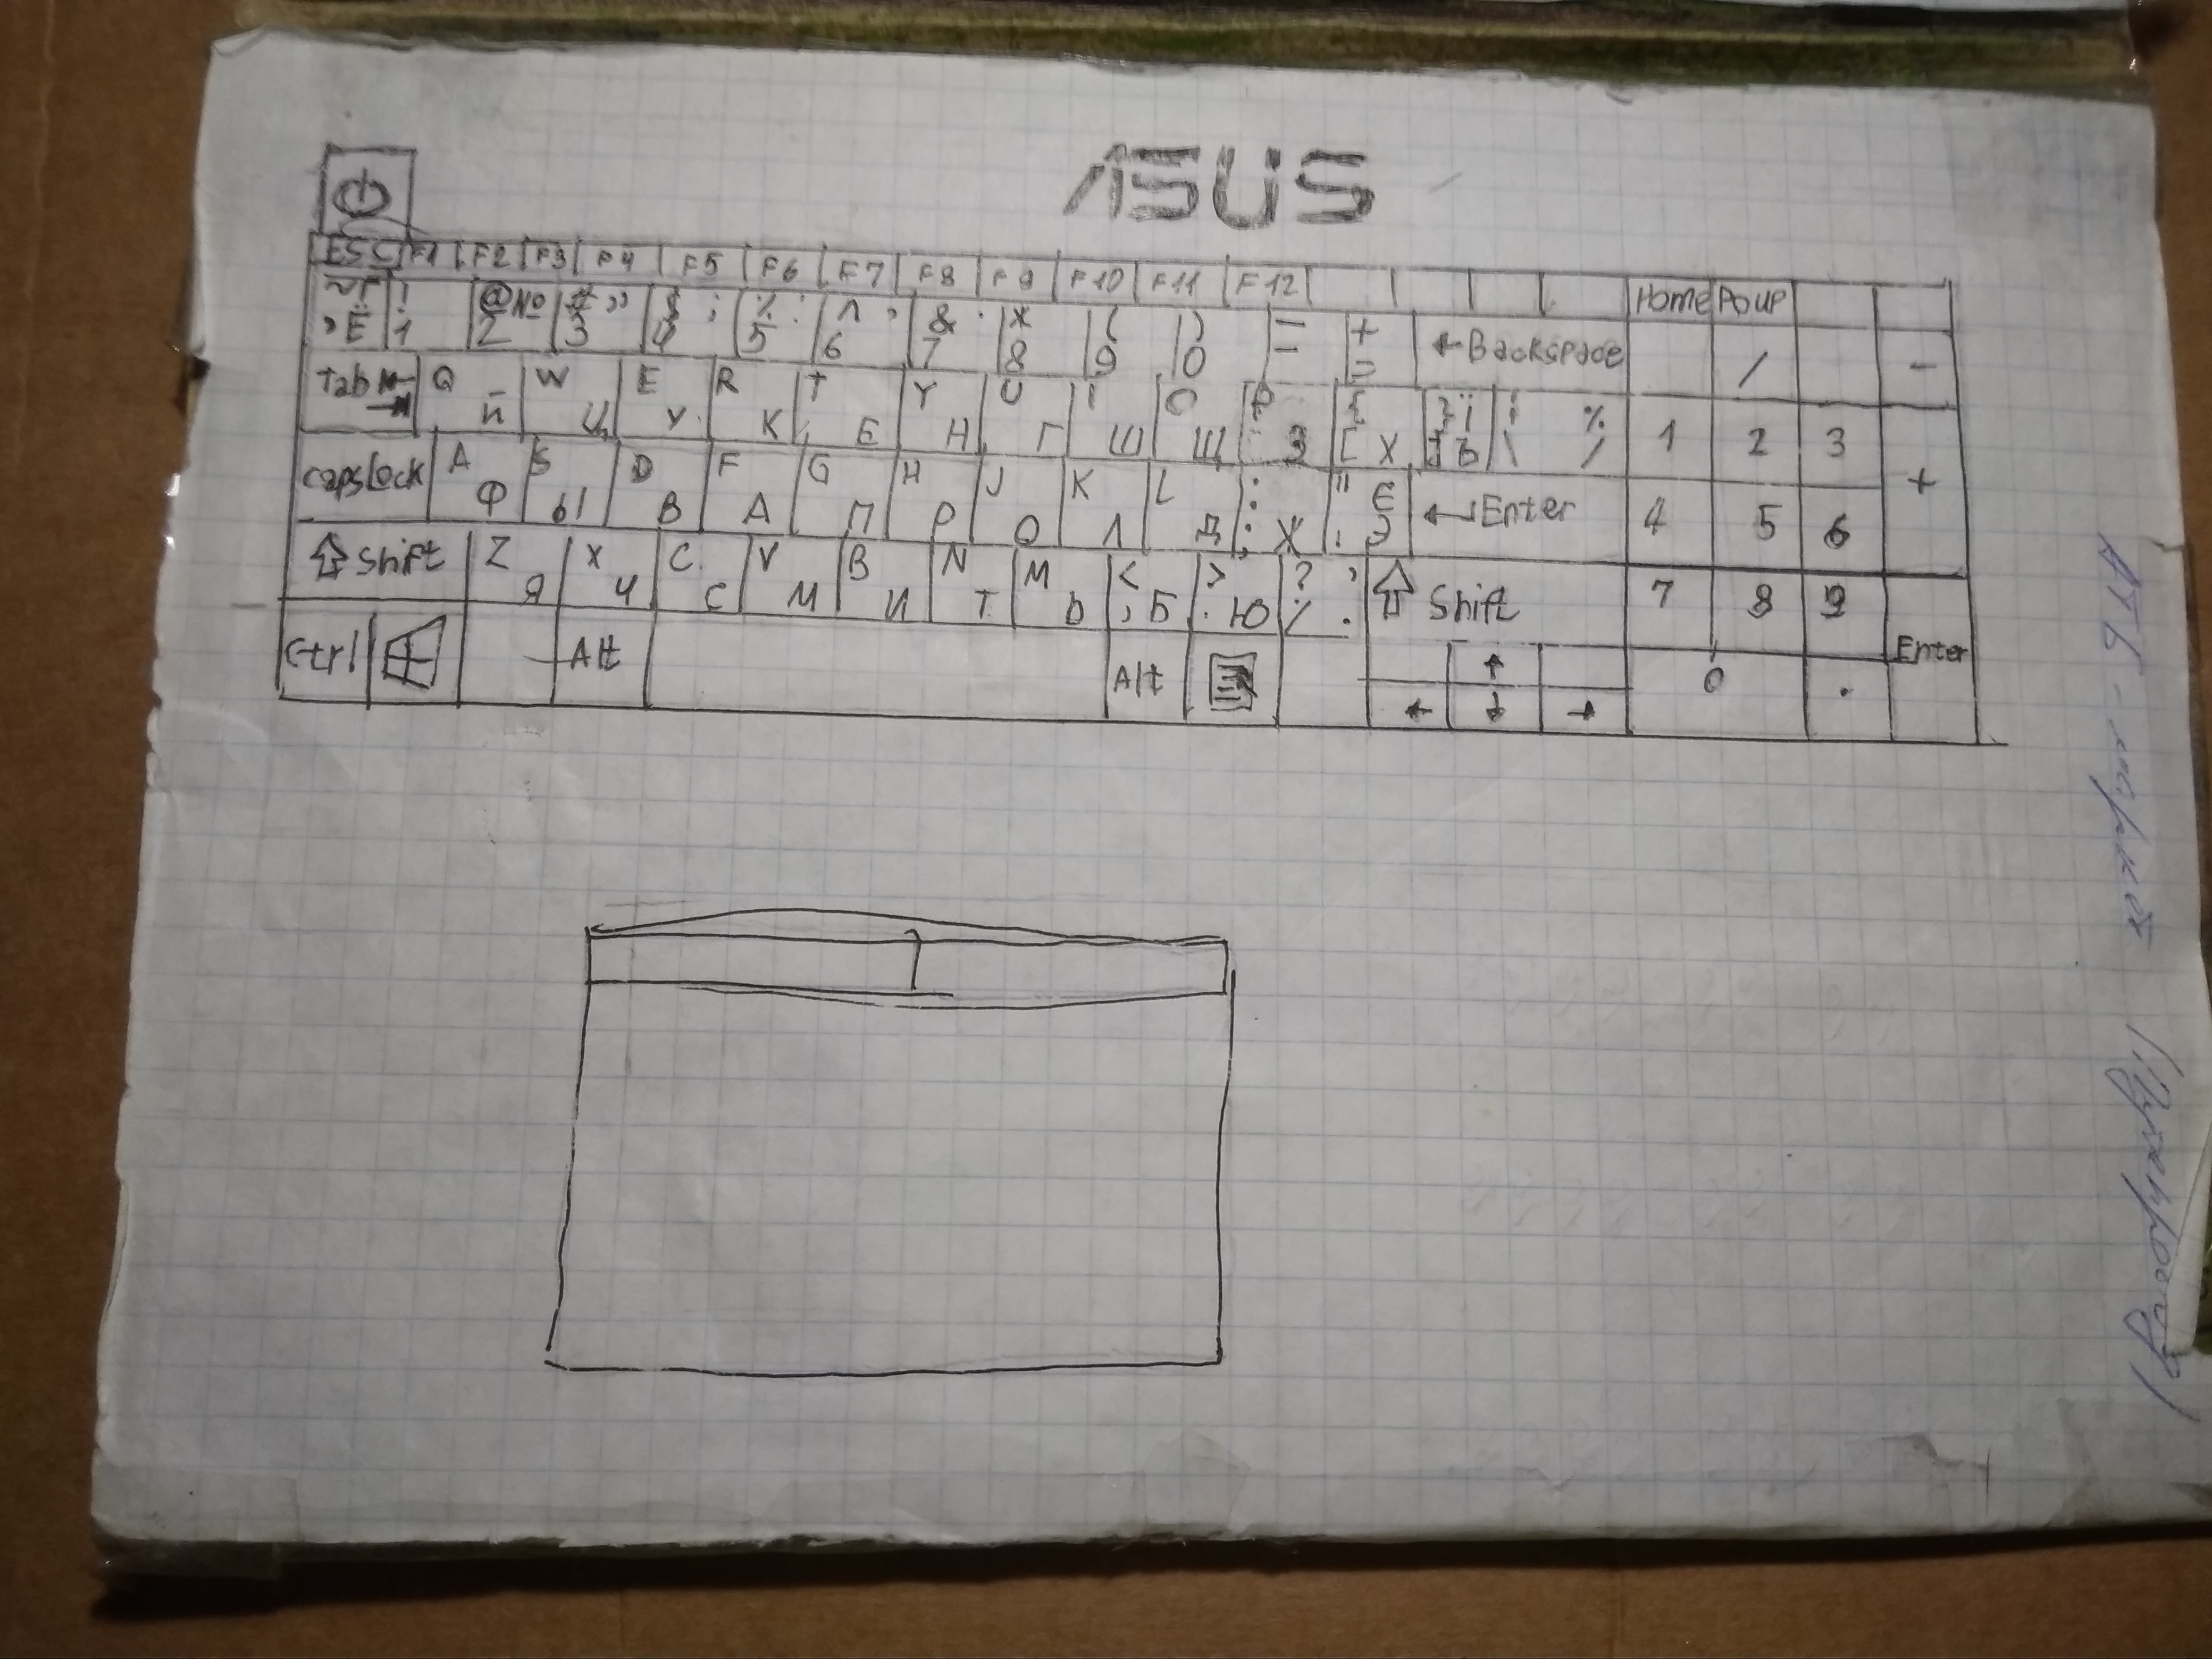 ASUS
ESC F1 F2 F3 F4 F5 F6 F7 F8 F9 F10 F11 F12 Home PGUP
~ Ё ! 1 @ № 2 # " 3 $ ; 4 % : 5 ^ , 6 & . 7 * 8 ( 9 ) 0 _ - + = ← Backspace / -
Tab Q Й W Ц E У R К T Е Y Н U Г I Ш O Щ P З { [ Х } Ї ] Ъ | \ % / 1 2 3 +
capsLock A Ф S Ы D В F А G П H Р J О K Л L Д : ; Ж " Є ' Э ↵ Enter 4 5 6
⇧ Shift Z Я X Ч C С V М B И N Т M Ь < , Б > . Ю ? / , . ⇧ Shift 7 8 9 Enter
Ctrl Alt Alt ↑ 0 .
← ↓ →